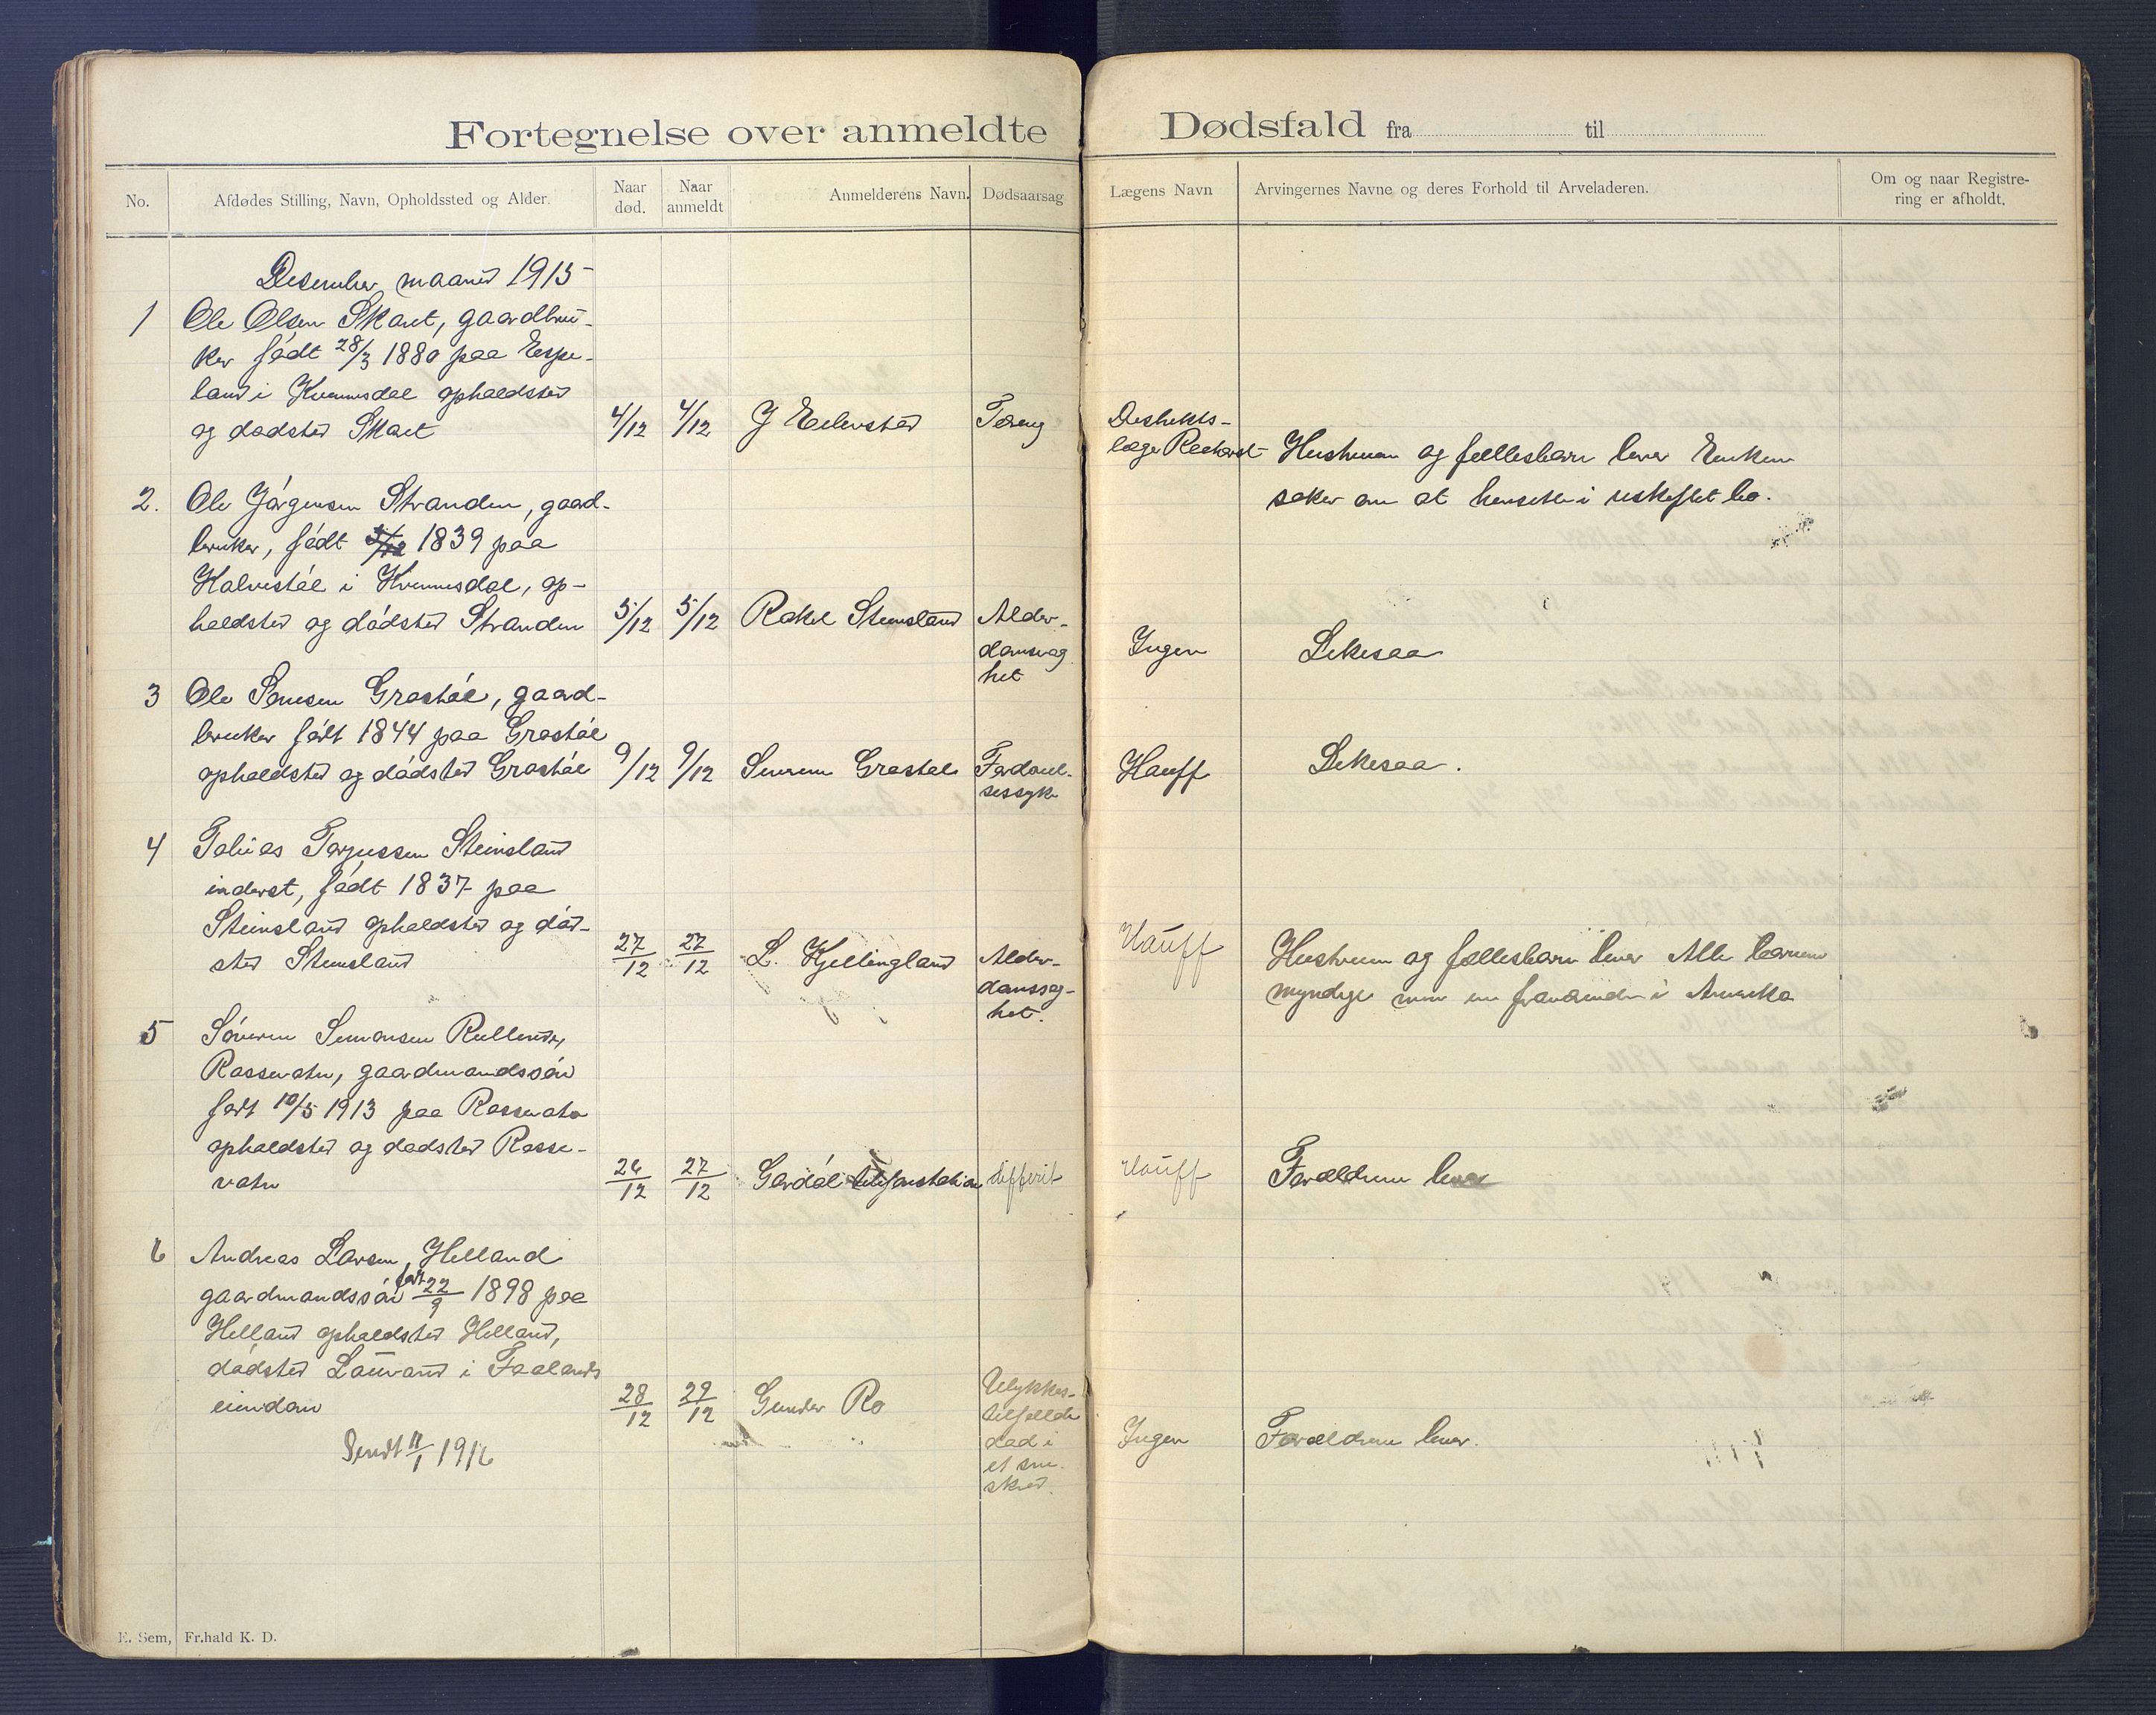 Fortegnelse over anmeldte Dødsfald fra til
No. Afdødes Stilling, Navn, Opholdssted og Alder. Naar død. Naar anmeldt Anmelderens Navn. Dødsaarsag Lægens Navn Arvingernes Navne og deres Forhold til Arveladeren. Om og naar Registrering er afholdt.
Desember maaned 1915
1 Ole Olsen Skaret, gaardbru-
ker født 28/3 1880 paa Espe-
land i Kvinnesdal opholdsted
og dødsted Skaret 4/12 4/12 J Eilevsted Tæring Destrikts-
læge
Hustruen og fællesbarn lever Enken
søker om at hensitte i uskiftet bo.
2. Ole Jørgensen Stranden, gaard-
bruker, født 1839 paa
Kalvestøl i Kvinnesdal, op-
holdsted og dødsted Stranden 5/12 5/12 Rakel Steinsland Alder-
domsvag
het
Ingen Likesaa
3 Ole Grøstøl, gaard-
bruker født 1844 paa Grøstøl
opholdsted og dødsted Grøstøl 9/12 9/12 Grøstøl Fordøiel-
sessyk
Hauff Likesaa.
4 Tobias Torjussen Steinsland
inderst, født 1837 paa
Steinsland opholdsted og død-
sted Steinsland 27/12 27/12 L. Kjellingland Alder-
domssvag-
het.
Hauff Hustruen og fællesbarn lever Alle barnene
myndige men en fraværende i Amerika
5 Søveren Simonsen
Rossevatn, gaardmandssøn
født 10/5 1913 paa Rossevatn
opholdsted og dødsted Rosse-
vatn 26/12 27/12 telefonstation differit Hauff Forældrene lever
6 Andreas Larsen Helland
gaardmandssøn født 22/9 1898 paa
Helland opholdsted Helland,
dødsted i
eiendom 28/12 29/12 Gunder Ro Ulykkes-
tilfælde
død i
et sne-
skred.
Ingen Forældrene lever.
Sendt 11/1 1916
E. Sem, Fr.hald K. D.